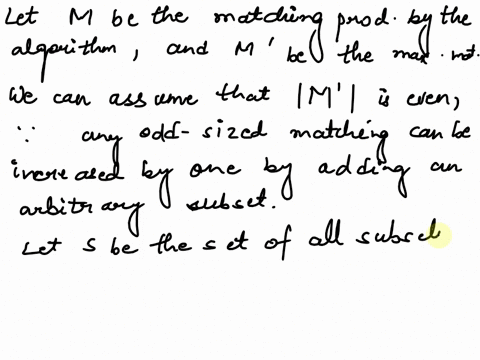 Let M be the matching prod. by the
algorithm, and M' be the max. mat.
We can assume that |M'| is even,
∵ any odd-sized matching can be
increased by one by adding an
arbitrary subset.
Let S be the set of all subset